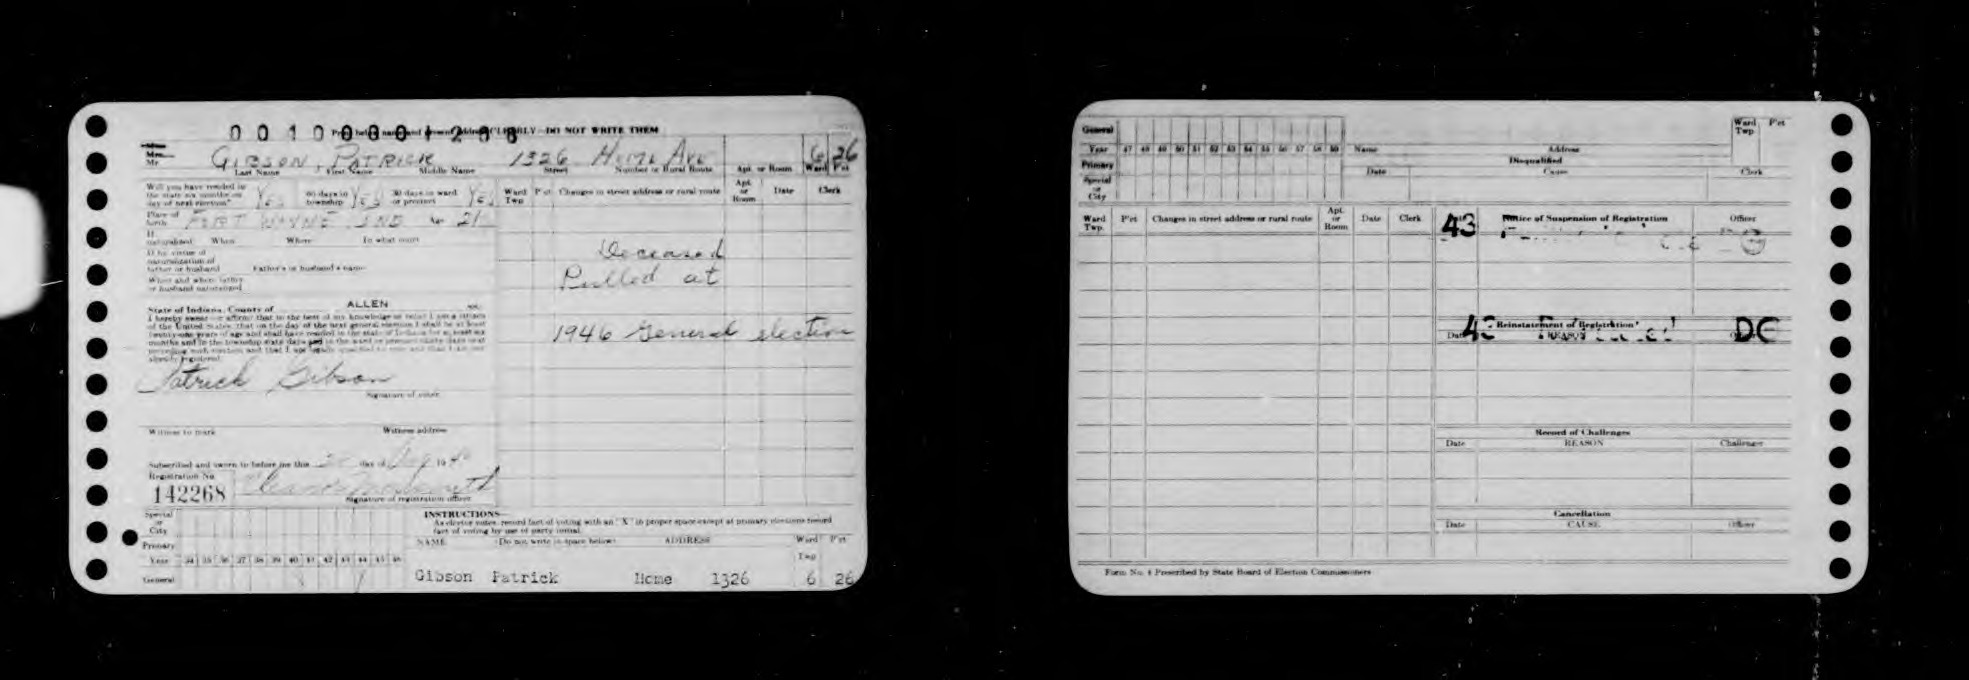 00100001208
Print below name and present address CLEARLY—DO NOT WRITE THEM
Mr. GIBSON, PATRICK 1326 HOME AVE 6 26
Last Name First Name Middle Name Street Number or Rural Route Apt. or Room Ward P'ct
Will you have resided in the state six months on day of next election? YES 60 days in township YES 30 days in ward or precinct YES
Ward Twp P'ct Changes in street address or rural route Apt. or Room Date Clerk
Place of birth FORT WAYNE IND 21
If naturalized When Where In what court
If by virtue of naturalization of father or husband Father's or husband's name
When and where father or husband naturalized
Deceased
Pulled at
1946 General election
State of Indiana, County of ALLEN ss:
I hereby swear or affirm that to the best of my knowledge or belief I am a citizen
of the United States, that on the day of the next general election I shall be at least
twenty-one years of age and shall have resided in the state of Indiana for at least six
months and in the township sixty days and in the ward or precinct thirty days next
preceding such election and that I am legally qualified to vote and that I am not
already registered.
Patrick Gibson
Signature of voter
Witness to mark Witness address
Subscribed and sworn to before me this day of 19 40
Registration No.
142268
Signature of registration officer
INSTRUCTIONS—
As elector votes, record fact of voting with an "X" in proper space except at primary elections record
fact of voting by use of party initial.
Special or City
Primary
Year 34 35 36 37 38 39 40 41 42 43 44 45 46
General
NAME (Do not write in space below) ADDRESS Ward Twp P'ct
Gibson Patrick Home 1326 6 26
General
Year 47 48 49 50 51 52 53 54 55 56 57 58 59
Primary
Special or City
Name Address Ward Twp P'ct
Disqualified
Date Cause Clerk
Ward Twp. P'ct Changes in street address or rural route Apt. or Room Date Clerk
43 Notice of Suspension of Registration Officer
Reinstatement of Registration
Date REASON DC
Record of Challenges
Date REASON Challenger
Cancellation
Date CAUSE Officer
Form No. 4 Prescribed by State Board of Election Commissioners